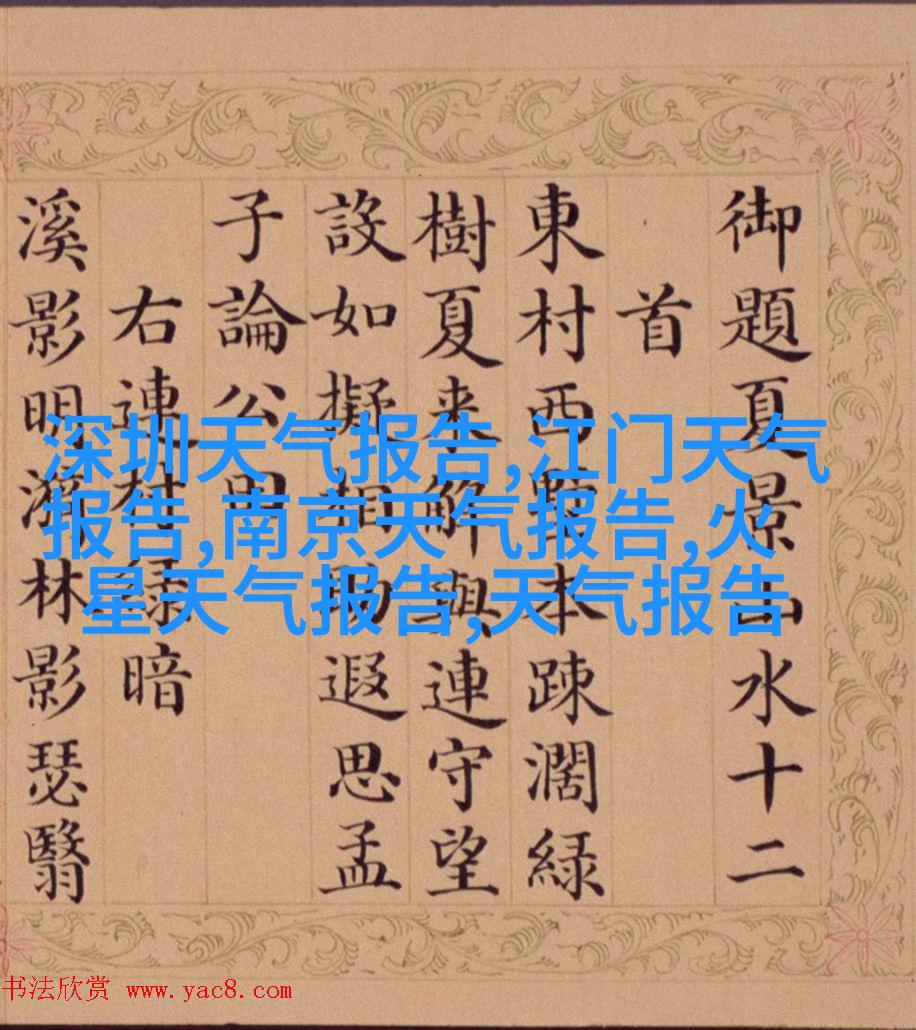 御題夏景山水十二
首
東村西墅本疎濶緑
樹夏来解與連守望
設如擬相助遐思孟
子論公田
右連村緑暗
溪影明林影瑟翳
深圳天气报告,江门天气
报告,南京天气报告,火
星天气报告,天气报告
书法欣赏 www.yac8.com